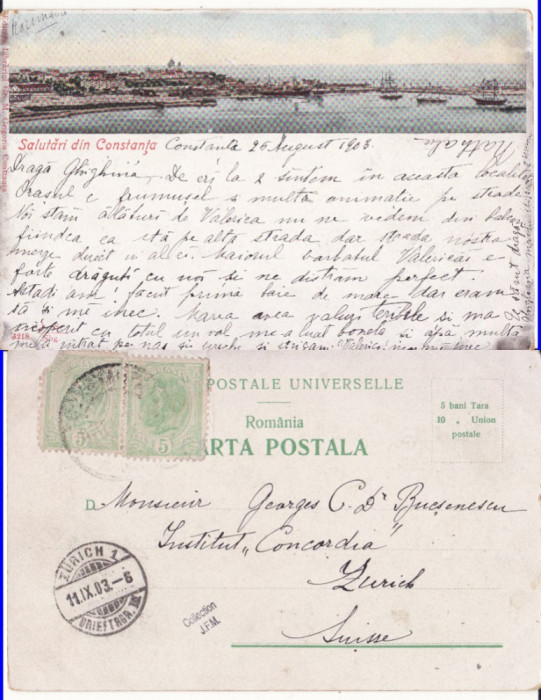 Salutări din Constanţa
Constanta 26 August 1903.
Nathalie
Dragă Ghighina, De eri la 2 sîntem în aceasta localitate
Orasul e frumuşel s multa animatie pe strade
Noi stăm alături de Valerica nu ne vedem din balcon
fiindca ea stă pe alta strada dar strada nostra
merge drept in al ei. Maiorul barbatul Valericăi e
forte drăguţ cu noi si ne distrăm perfect.
Astadi am făcut prima baie de mare, dar eram
să si me inec. Marea avea valuri forte si m'a
cu totul un val me-a luat boneta si apa multa
me-a intrat pe nas si urechi si
4218
POSTALE UNIVERSELLE
România
CARTA POSTALA
5 bani Tara
10 „ Union
postale
5
5
D Monsieur Georges C. Dr Bucsenescu
Institut „Concordia"
Zurich
Suisse
ZÜRICH 1
11.IX.03.–6
BRIEFTRÄG. III
Collection
J.F.M.